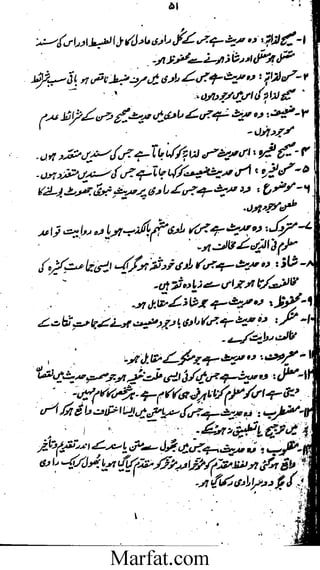 ۵۱
۱- صحیح لذاتہ: وہ حدیث ہے جس کے کل راوی عادل کامل الضبط اور اس کی سند
متصل ہو معلل اور شاذ ہونے سے محفوظ ہو۔
۲- حسن لذاتہ: وہ حدیث ہے جس کے راوی میں صرف ضبط ناقص ہو باقی سب شرائط
صحیح لذاتہ کی اس میں موجود ہوں۔
۳- ضعیف: وہ حدیث ہے جس کے راوی میں حدیث صحیح و حسن کے شرائط عدم
موجود ہوں۔
۴- صحیح لغیرہ: اس حدیث حسن لذاتہ کو کہا جاتا ہے جس کی سندیں متعدد ہوں۔
۵- حسن لغیرہ: اس حدیث ضعیف کو کہا جاتا ہے جس کی سندیں متعدد ہوں۔
۶- موضوع: وہ حدیث ہے جس کے راوی پر حدیث نبوی جھوٹ بولنے کا
طعن موجود ہوں۔
۷- متروک: وہ حدیث ہے جس کا راوی متہم بالکذب ہو یا وہ روایت قواعد
معلوم فی الدین کے مخالف ہو۔
۸- شاذ: وہ حدیث ہے جس کا راوی خود ثقہ ہو مگر ایک ایسی جماعت کثیرہ کی
مخالفت کرتا ہو جو اس سے زیادہ ثقہ ہیں۔
۹- محفوظ: وہ حدیث ہے جو شاذ کے مقابل ہو۔
۱۰- منکر: وہ حدیث ہے جس کا راوی باوجود ضعیف ہونے کے جماعت ثقات کے
مخالف روایت کرے۔
۱۱- معروف: وہ حدیث ہے جو منکر کے مقابل ہو۔
۱۲- معلل: وہ حدیث ہے جس میں کوئی ایسی علت خفیہ ہو جو صحت حدیث میں نقصان
دیتی ہے اس کو معلوم کرنا ماہر فن ہی کا کام ہے۔ ہر شخص کا کام نہیں۔
۱۳- مضطرب: وہ حدیث ہے جس کی سند یا متن میں ایسا اختلاف واقع ہو کہ اس
میں ترجیح یا تطبیق نہ ہو سکے۔
۱۴- مقلوب: وہ حدیث ہے جس میں بھول سے متن یا سند کے اندر تقدیم و تاخیر
واقع ہو گئی ہو لفظ مقدم کو مؤخر اور مؤخر کو مقدم کیا گیا ہو یا بھول کر ایک راوی
کی جگہ دوسرا راوی رکھا گیا ہو۔
۱
Marfat.com